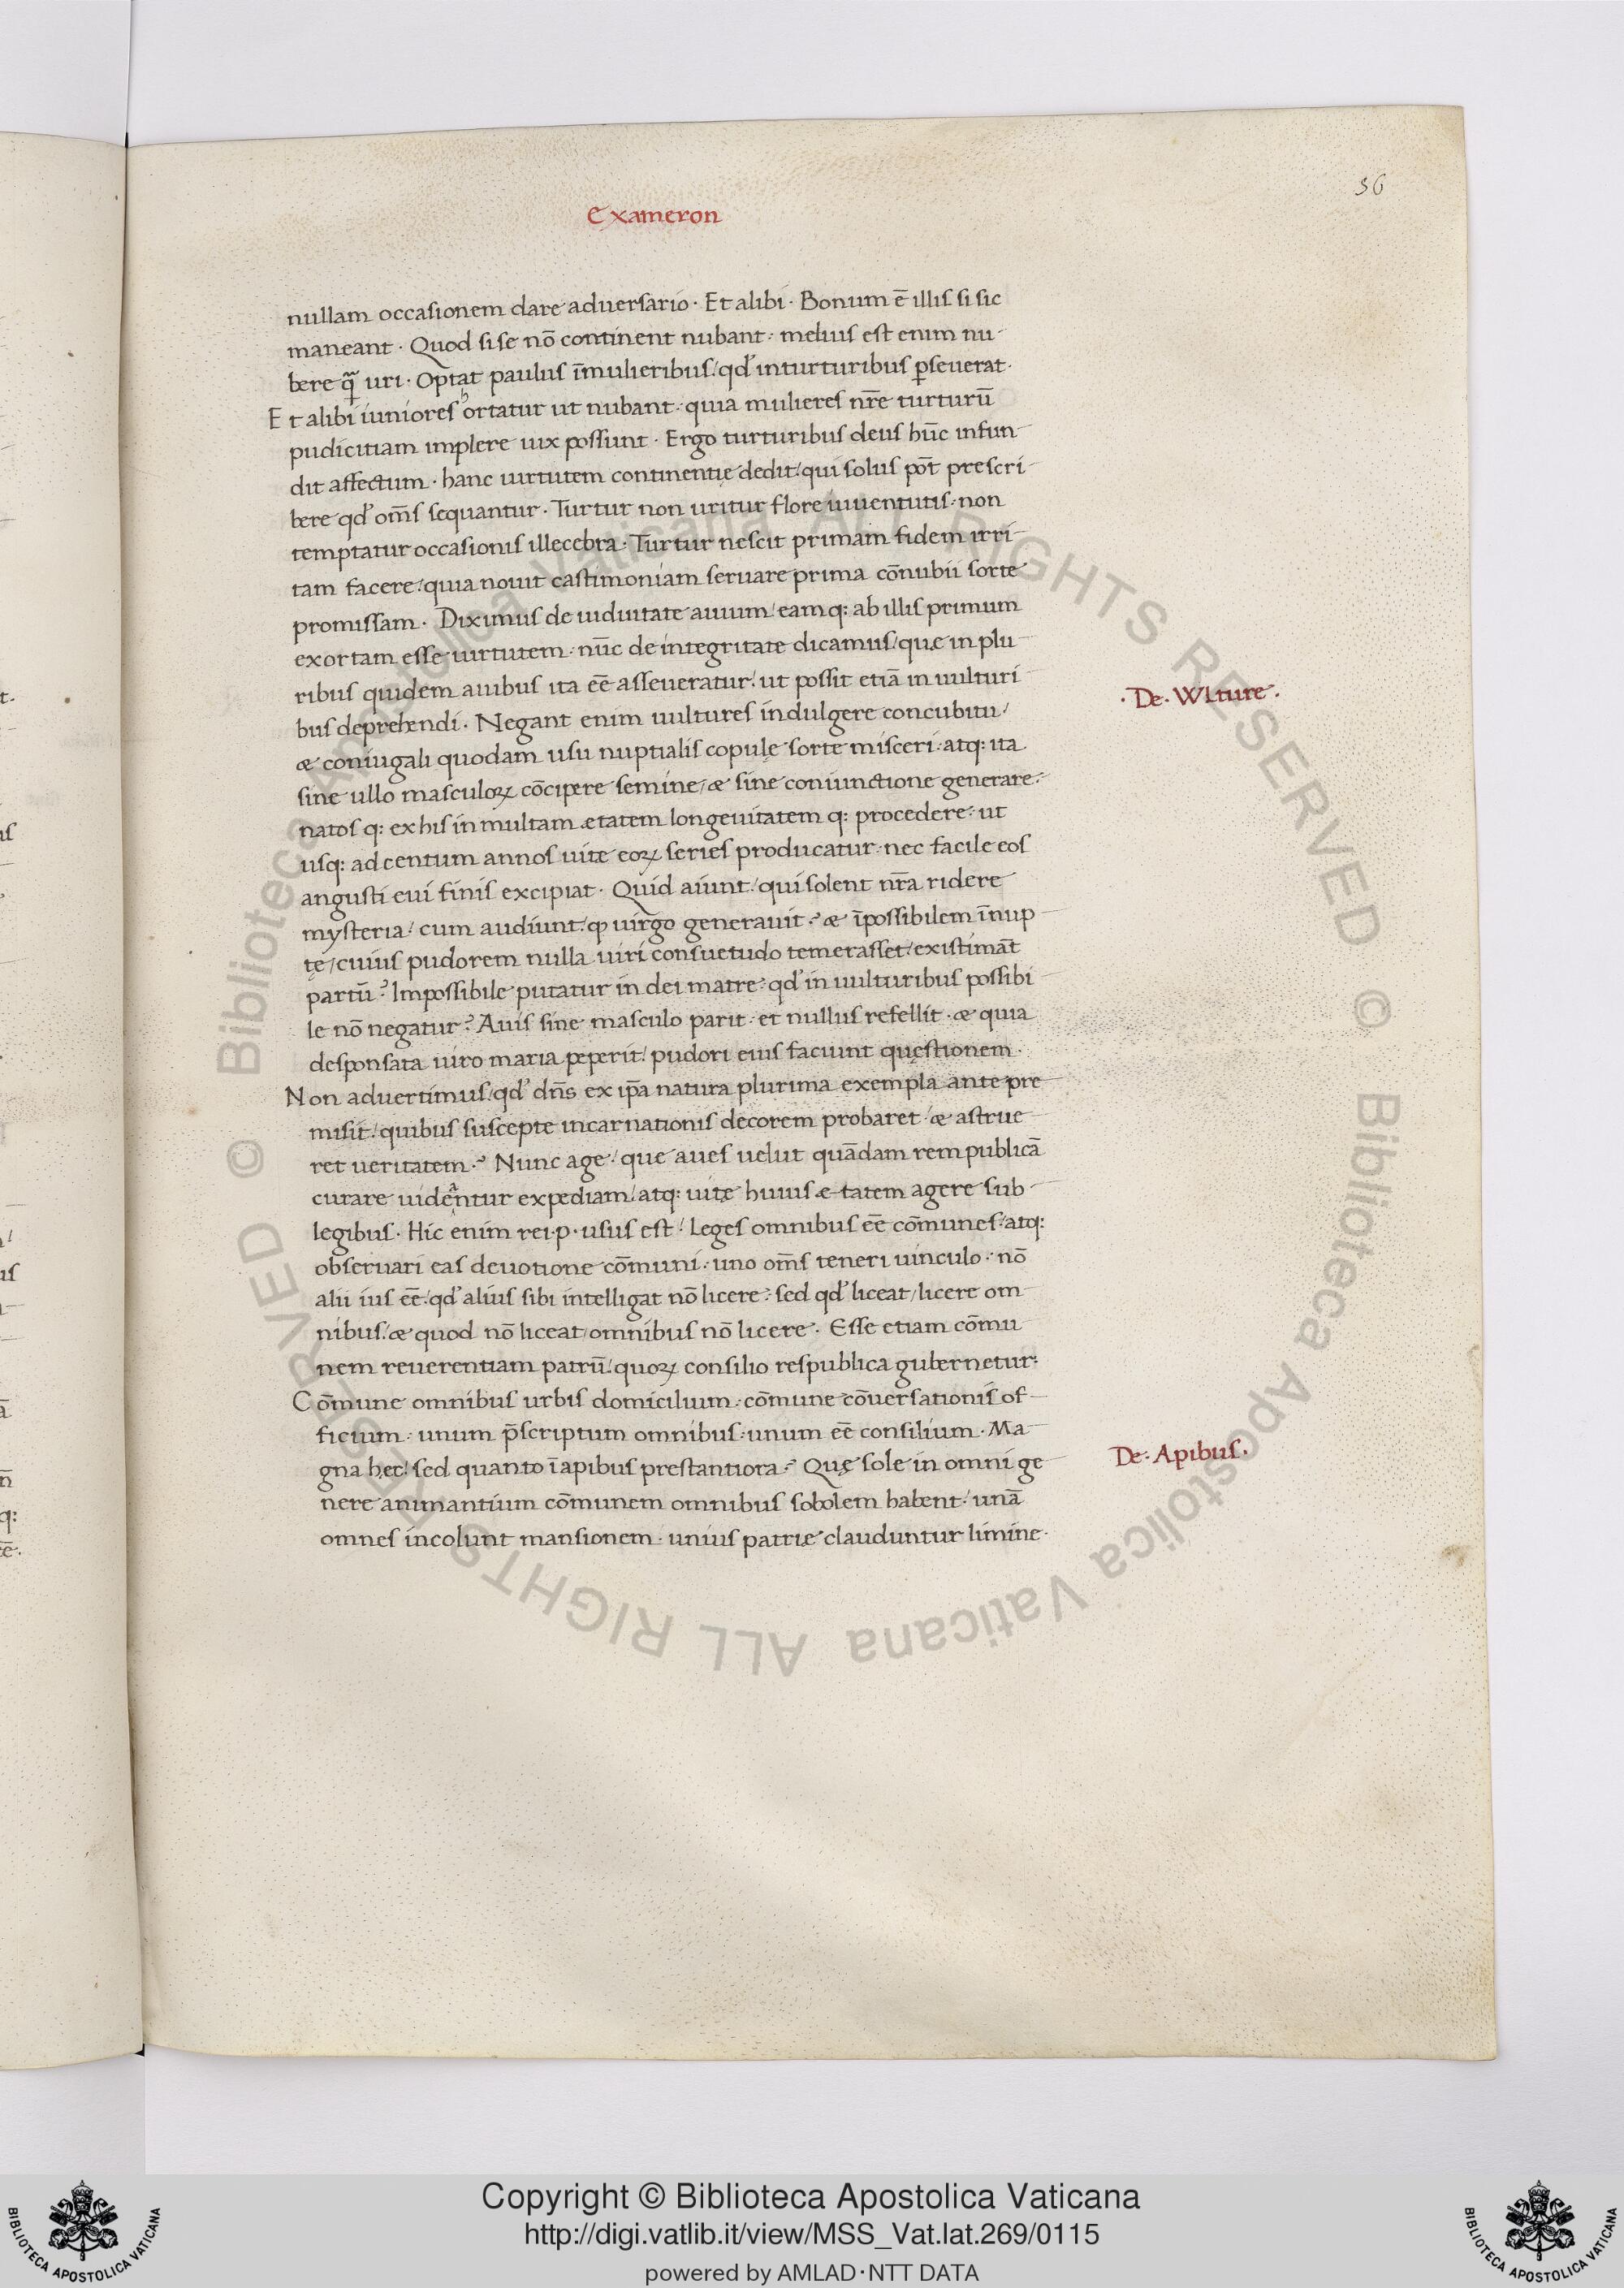 56
Exameron
nullam occasionem dare aduersario · Et alibi · Bonum ē illis si sic
maneant · Quod si se nō continent nubant : melius est enim nu
bere q̄ uri · Optat paulus ī mulieribus / qđ in turturibus ꝑseuerat ·
Et alibi iuniores hortatur ut nubant : quia mulieres nr̄e turturū
pudicitiam implere uix possunt · Ergo turturibus deus hūc infun
dit affectum · hanc uirtutem continentię dedit / qui solus pōt prescri
bere qđ om̄s sequantur · Turtur non uritur flore iuuentutis : non
temptatur occasionis illecebra · Turtur nescit primam fidem irri
tam facere / quia nouit castimoniam seruare prima cōnubii sorte
promissam · Diximus de uiduitate auium / eamq: ab illis primum
exortam esse uirtutem : nūc de integritate dicamus / quæ in plu
ribus quidem auibus ita eē asseueratur / ut possit etiā in uulturi
bus deprehendi · Negant enim uultures indulgere concubitu /
æ coniugali quodam usu nuptialis copulę sorte misceri : atq: ita
sine ullo masculoꝝ cōcipere semine / æ sine coniunctione generare :
natos q: ex his in multam ætatem longeuitatem q: procedere : ut
usq: ad centum annos uitæ eoꝝ series producatur : nec facile eos
angusti eui finis excipiat · Quid aiunt / qui solent nr̄a ridere
mysteria / cum audiunt / ꝙ uirgo generauit ? æ īpossibilem īnup
tę / cuius pudorem nulla uiri consuetudo temerasset / existimāt
partū ? Impossibile putatur in dei matre : qđ in uulturibus possibi
le nō negatur ? Auis sine masculo parit : et nullus refellit · æ quia
desponsata uiro maria peperit / pudori eius faciunt quęstionem ·
Non aduertimus / qđ dn̄s ex ip̄a natura plurima exempla ante pre
misit / quibus susceptæ incarnationis decorem probaret / æ astrue
ret ueritatem ? Nunc age / quæ aues uelut quādam rempublicā
curare uideantur expediam / atq: uitæ huius ætatem agere sub
legibus · Hic enim rei · p · usus est / Leges omnibus eē cōmunes / atq:
obseruari eas deuotione cōmuni : uno om̄s teneri uinculo : nō
alii ius eē / qđ alius sibi intelligat nō licere : sed qđ liceat / licere om
nibus / æ quod nō liceat / omnibus nō licere · Esse etiam cōmu
nem reuerentiam patrū / quoꝝ consilio respublica gubernetur :
Cōmune omnibus urbis domicilium : cōmune cōuersationis of
ficium : unum p̄scriptum omnibus : unum eē consilium · Ma
gna hęc / sed quanto ī apibus prestantiora ? Quę sole in omni ge
nere animantium cōmunem omnibus sobolem habent / unā
omnes incolunt mansionem · unius patriæ clauduntur limine ·
· De · Wlture ·
De · Apibus ·
© Biblioteca Apostolica Vaticana ALL RIGHTS RESERVED © Biblioteca Apostolica Vaticana ALL RIGHTS RESERVED
Copyright © Biblioteca Apostolica Vaticana
http://digi.vatlib.it/view/MSS_Vat.lat.269/0115
powered by AMLAD·NTT DATA
BIBLIOTECA APOSTOLICA VATICANA
BIBLIOTECA APOSTOLICA VATICANA